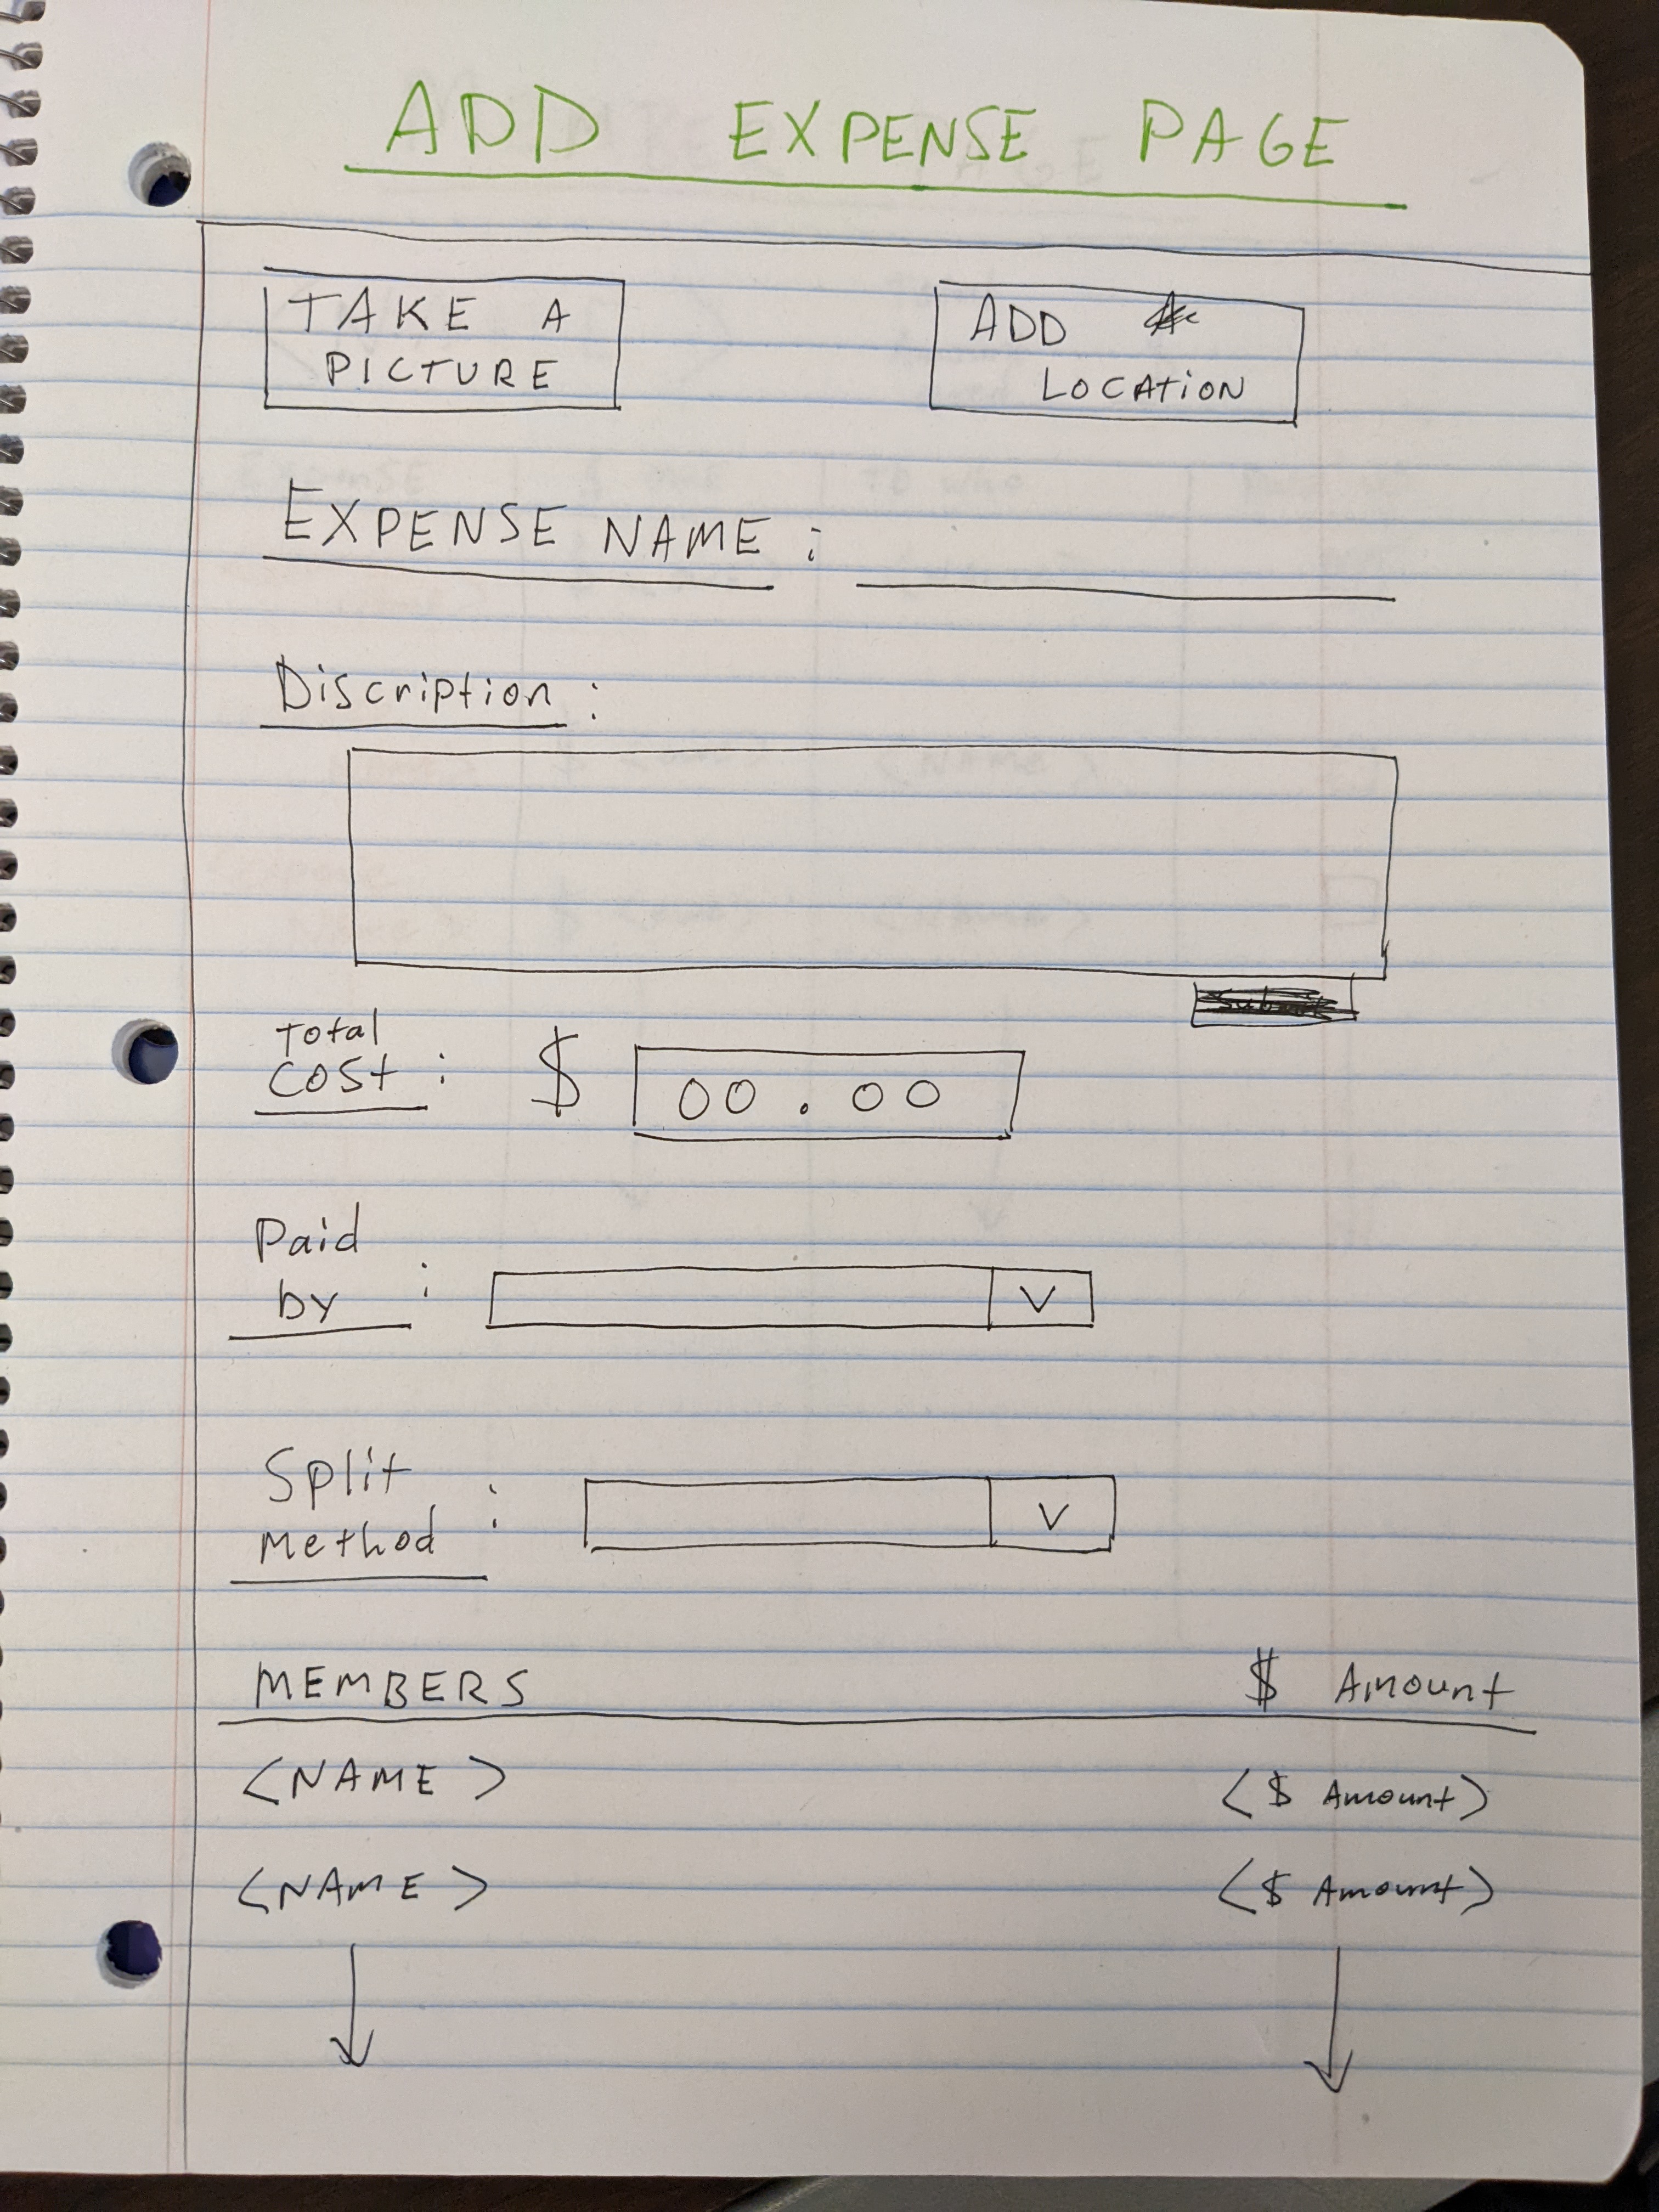 ADD EXPENSE PAGE
TAKE A
PICTURE
ADD
LOCATION
EXPENSE NAME :
Discription :
Total
Cost :
$ 00.00
Paid
by :
V
Split
Method :
V
MEMBERS $ Amount
<NAME> <$ Amount>
<NAME> <$ Amount>